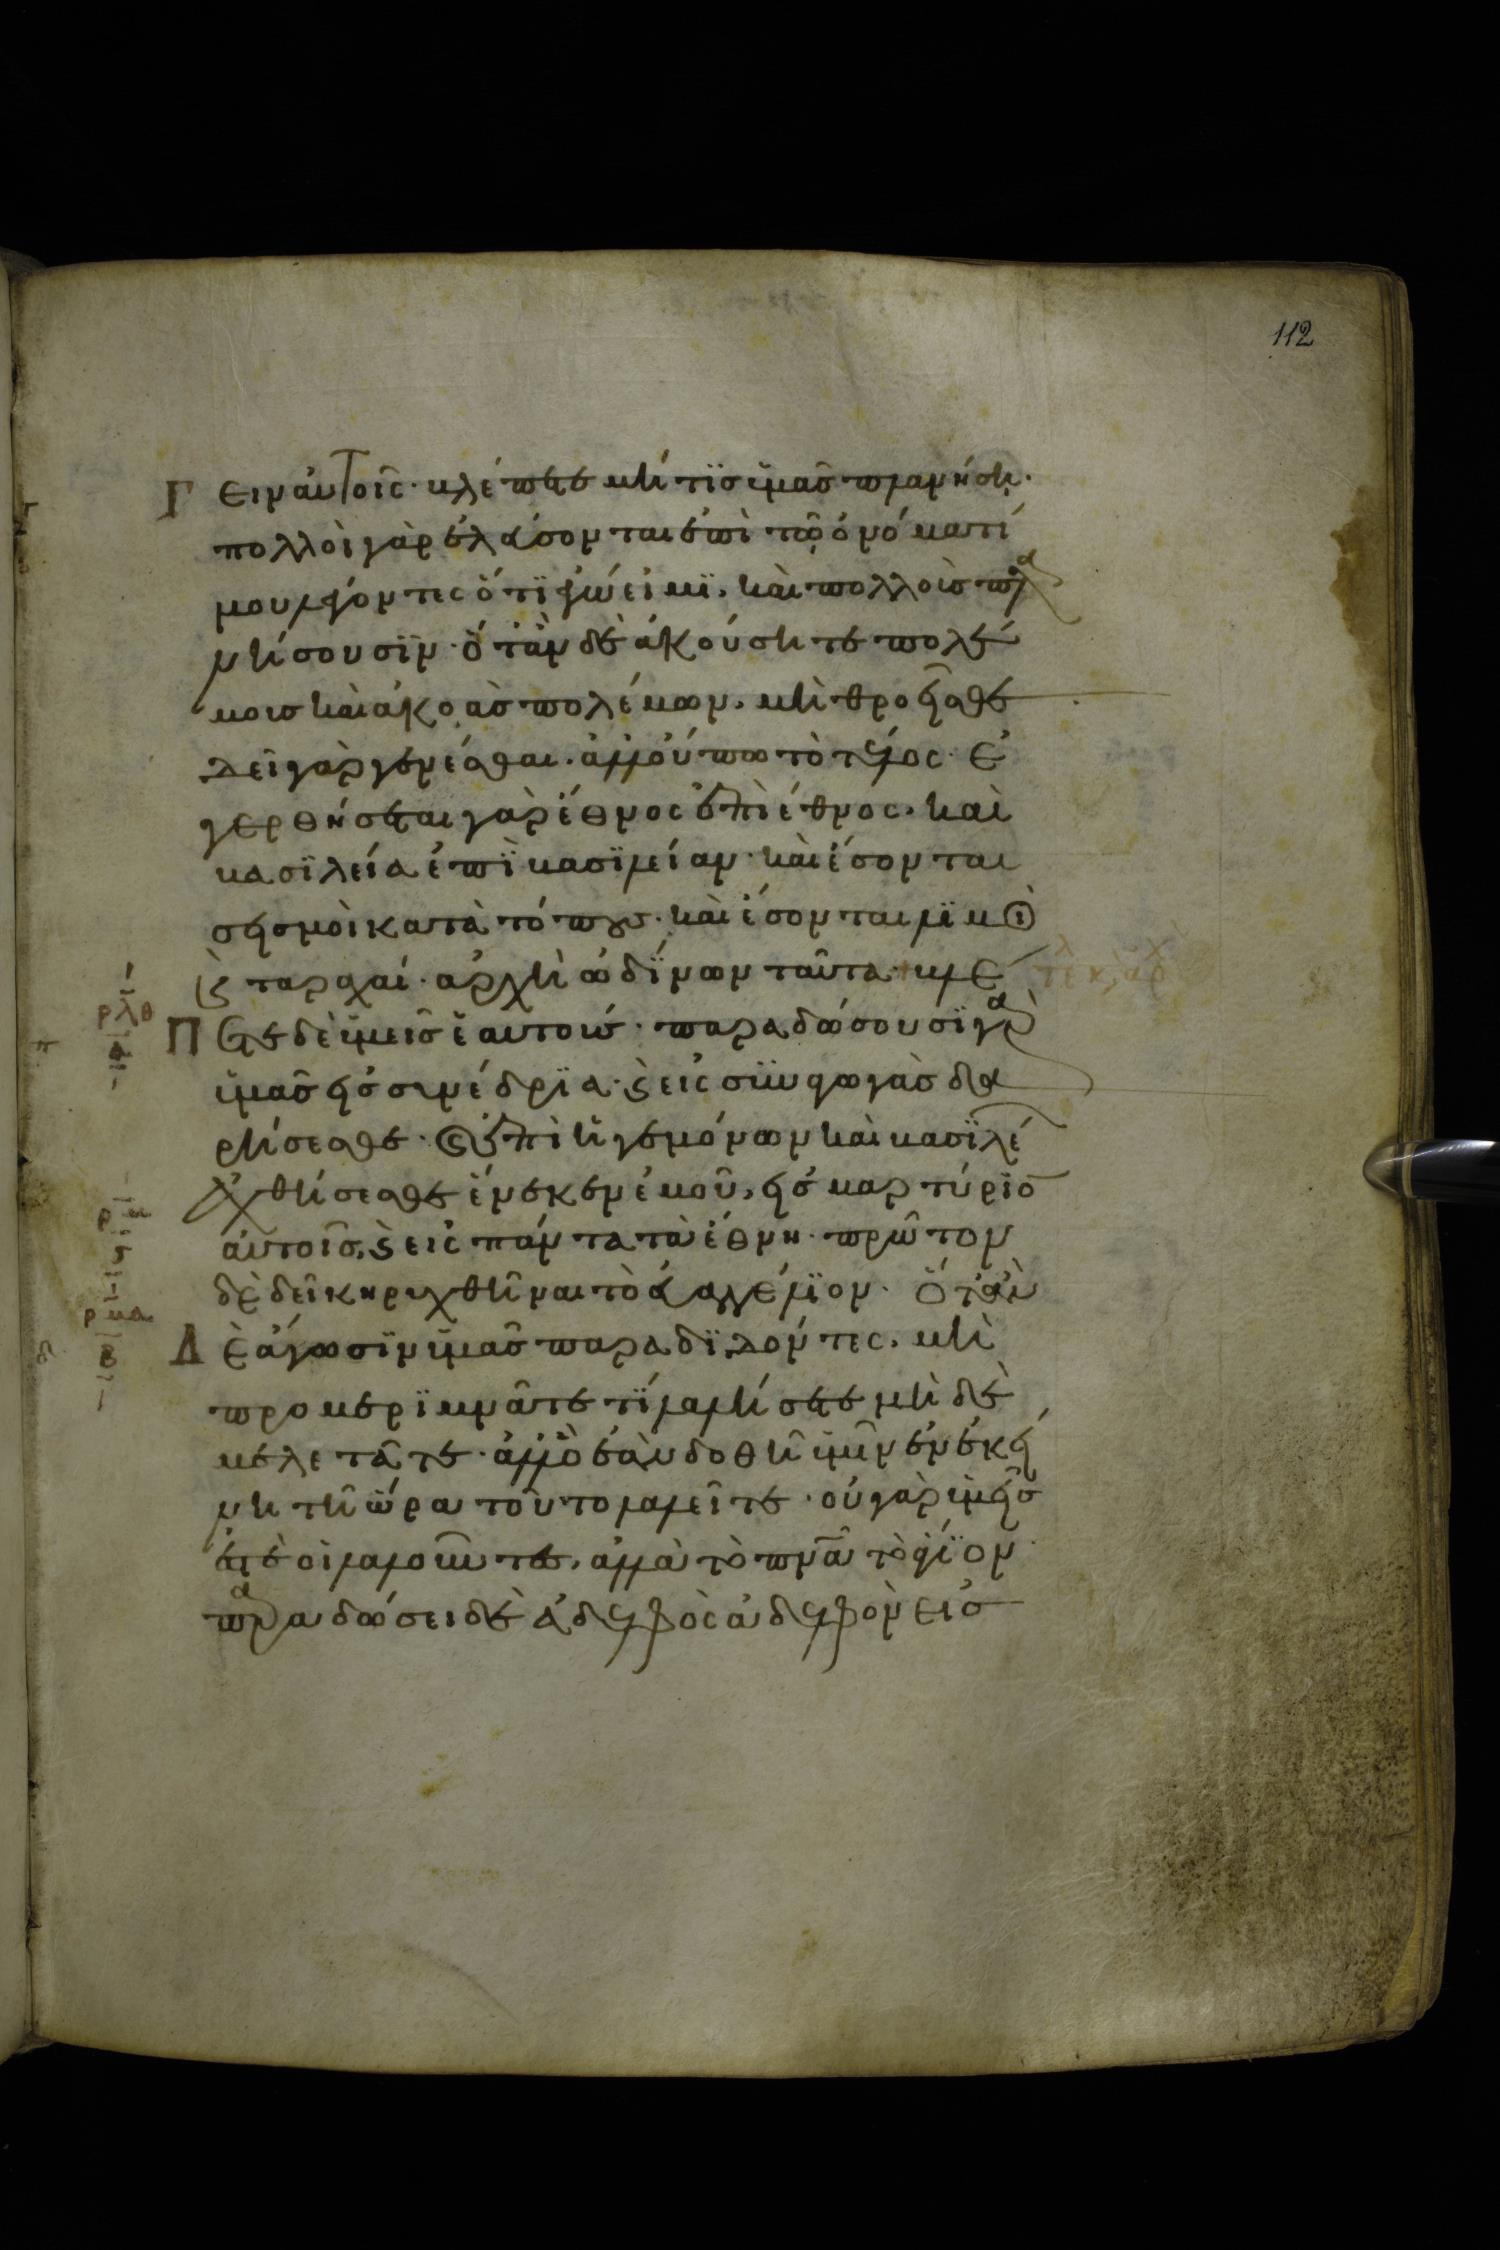 112
Γ ειν αυτοῖς· βλέπετε μή τϊσ ὑμᾶσ πλανήση·
πολλοὶ γὰρ ἐλεύσονται ἐπὶ τῶ ὀνόματί
μου λέγοντες ὅτϊ ἐγώ εἰμϊ, καὶ πολλοὺσ πλα
νήσουσϊν· ὅτὰν δὲ ἀκούσητε πολέ
μουσ καὶ ἀκοὰσ πολέμων, μὴ θροεῖσθε
δεῖ γὰρ γενέσθαι· ἀλλ οὔπω τὸ τέλος· ἐ
γερθήσεται γὰρ ἔθνος ἐπὶ έθνος, καὶ
βασϊλεία ἐπῒ βασϊλείαν· καὶ ἔσονται
σεισμοὶ κατὰ τόπουσ· καὶ ἔσονται λϊμοὶ
ϗ ταραχαί· ἀρχὴ ὠδΐνων ταῦτα· βλέ
ρλθ
Π ετε δὲ ὑμεῖσ ἑαυτούσ· παραδώσουσϊ γὰρ
ὑμᾶσ εἰσ συνέδρϊα· ϗ εἰς συναγωγὰσ δα
ρήσεσθε· ϗ ἐπὶ ἡγεμόνων καὶ βασϊλέ
ἀχθήσεσθε ἕνεκεν ἐμοῦ, εἰσ μαρτύριο
αὐτοῖσ, ϗ εἰς πάντα τὰ ἔθνη· πρῶτον
ρμ
δὲ δεῖ κηρυχθῆναι τὸ εὐαγγέλϊον· ὅτὰν
ρμα
Δ ὲ ἀγωσϊν ὑμᾶσ παραδϊδόντες, μὴ
προμερϊμνᾶτε τΐ λαλήσετε μὴ δὲ
μελετᾶτε· ἀλλ ὃ ἐὰν δοθῆ ὑμῖν ἐν ἐκεί
νη τῆ ὥρα τοῦτο λαλεῖτε· οὐ γὰρ ὑμεῖσ
ἐστὲ οἱ λαλοῦντεσ, ἀλλὰ τὸ πνᾶ τὸ ἅγϊον
παραδώσει δὲ ἀδελφὸς ἀδελφὸν εισ